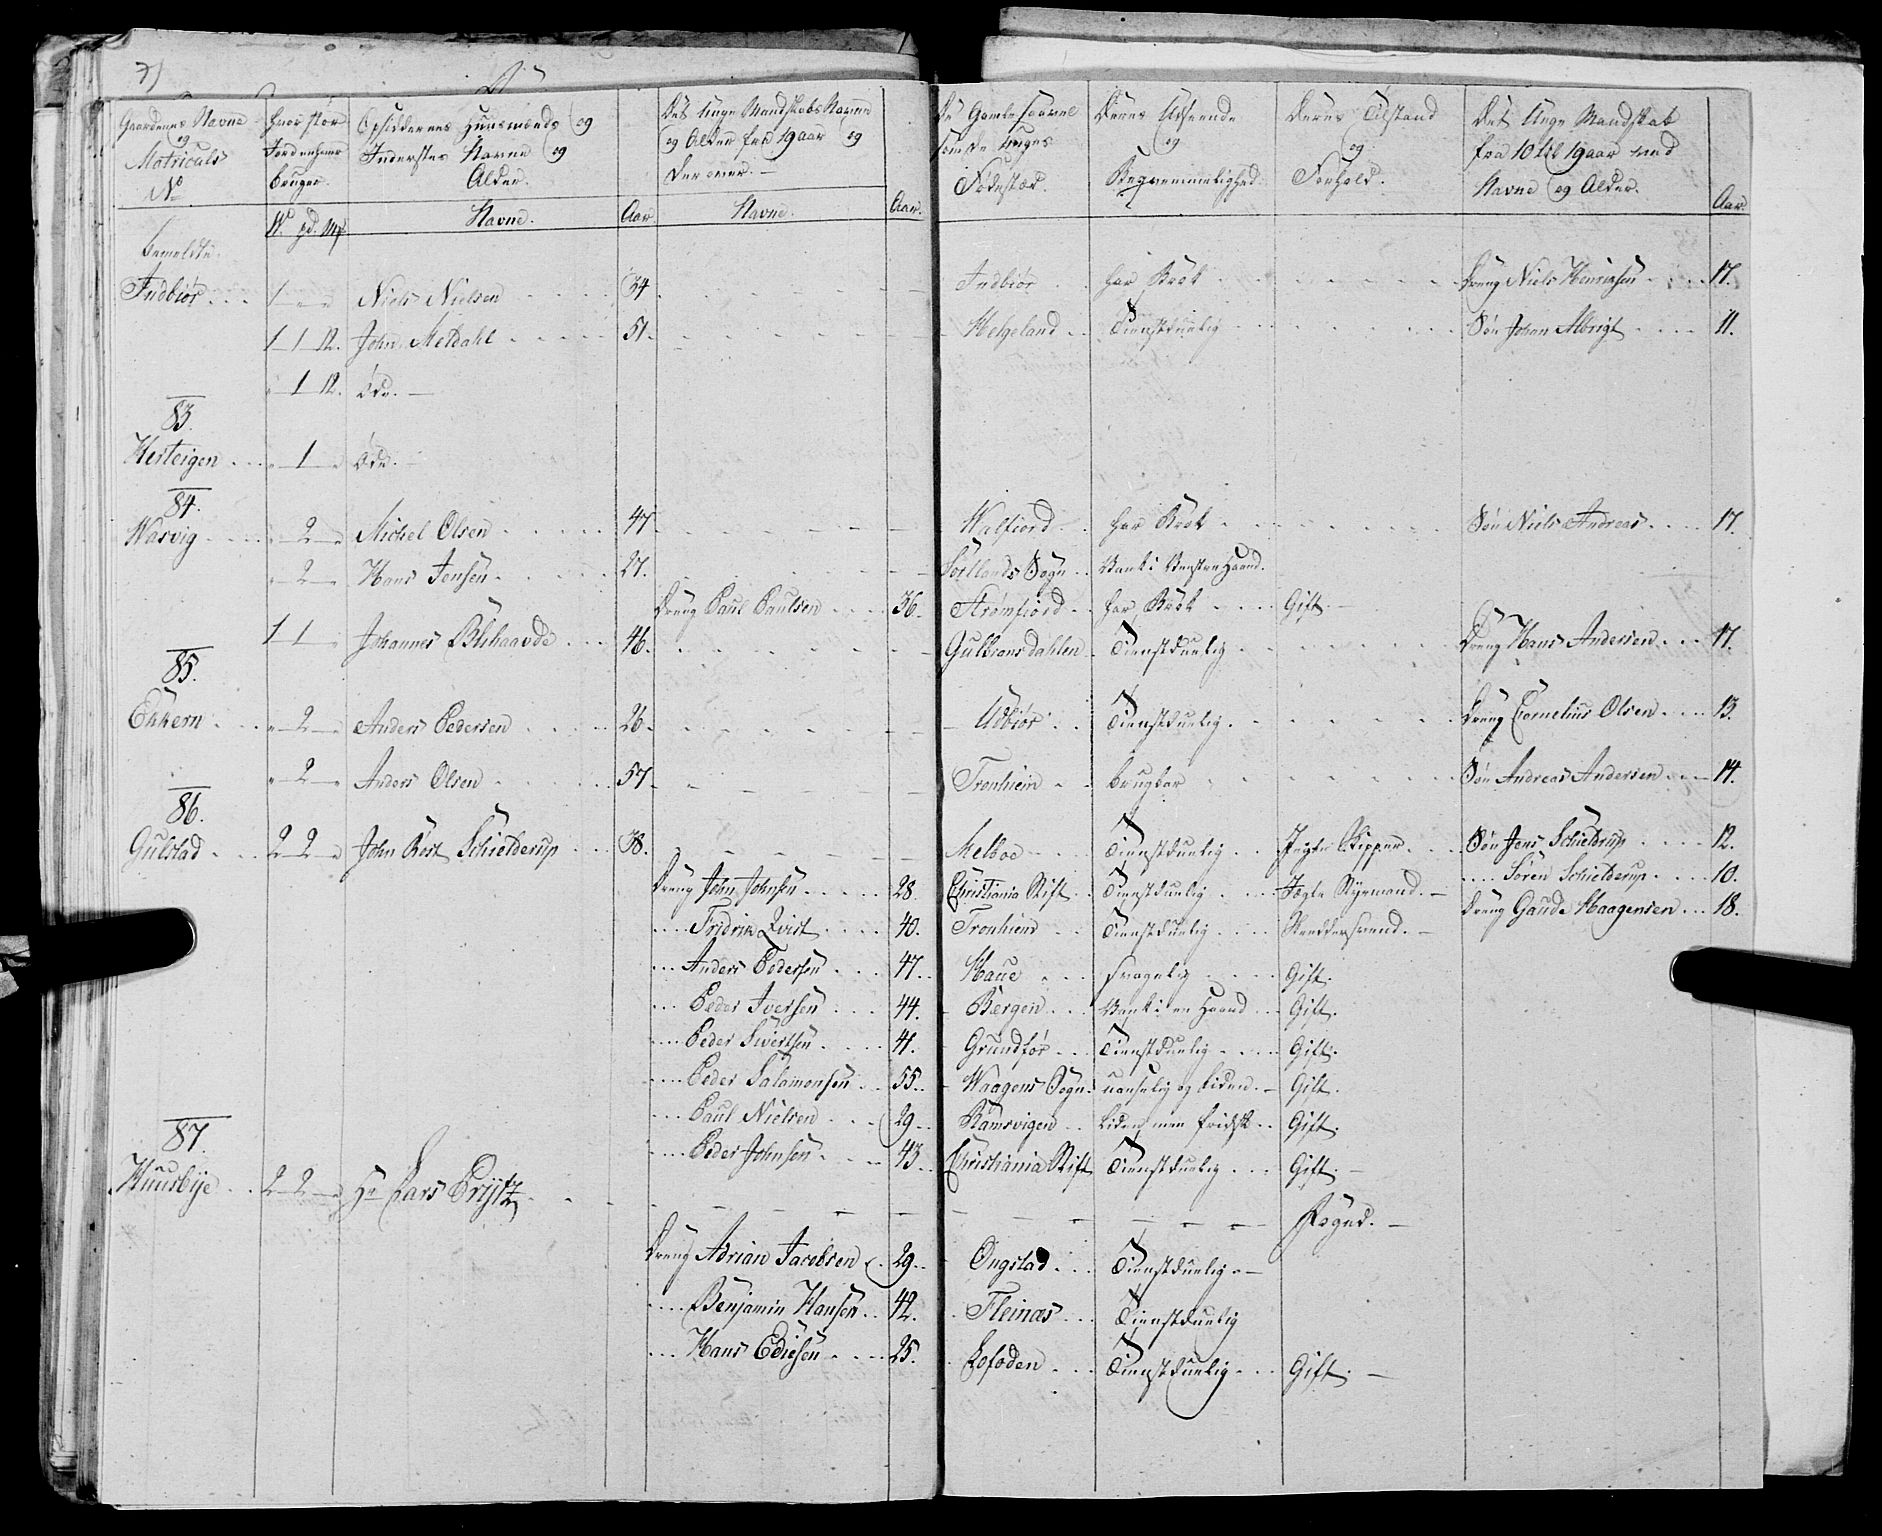 7)
Gaardenes Navne og Matriculs No
hvor stor Jord enhver bruger.
W. pd. Mk
Opsiddernes Huusmænds og Inderstes Navne og Alder.
Navne. Aar.
Det Unge Mandskabs Navne og Alder fra 19 aar og derover.
Navne. Aar.
De Gamle saavel som de Unges Fødested.
Deres Udseende og Beqvemmelighed.
Deres Tilstand og Forhold.
Det Unge Mandskab fra 10 til 19 aar med Navne og Alder. Aar.
bemeldte
Indbiør 1 Niels Nielsen 34 Indbiør har Brok Dreng Niels Henrichsen 17.
1 1 12. John Meldahl 51. Helgeland Tienstduelig Søn Johan Albrigt 11.
1 12. Øde.
83.
Hesteigen 1 Øde.
84.
Warvig 2 Michel Olsen 47. Walfiord har Brok Søn Niels Andreas 17.
2 Hans Jensen 27. Sortlands Sogn Vank i Venstre Haand.
Dreng Paul Paulsen 36. Strømfiord har Brok Gift.
1 1 Johannes Blehaavde 46. Gulbransdahlen Tienstduelig Dreng Hans Andersen 17.
85.
Ekkern 2 Anders Pedersen 26. Udbiør Tienstduelig. Dreng Cornelius Olsen 13.
2 Anders Olsen 57. Tronhiem brugbar Søn Andreas Andersen 14.
86.
Gulstad 2 2 John Rost Schielderup 38. Melboe Tienstduelig Jegte Skipper Søn Jens Schieldrup 12.
Dreng John Johnsen 28. Christiania Stift Tienstduelig Jegte Styrmand. Søren Schielderup 10.
Fridrik Qvist 40. Tronhiem Tienstduelig Dreng Gaude Haagensen 18.
Anders Pedersen 47. Haue svagelig Gift.
Peder Iversen 44. Bergen Vank i en Haand Gift.
Peder Sivertsen 41. Grundfør Tienstduelig Gift.
Peder Salamonsen 55. Waagens Sogn uanselig og liden. Gift.
Paul Nielsen 29. Ramsvigen liden men fridsk Gift.
Peder Johnsen 43. Christiania Stift Tienstduelig Gift.
87.
Huusbye 2 2 Hr Lars Prijtz Foged.
Dreng Adrian Jacobsen 29. Ongstad Tienstduelig
Benjamin Hansen 42. Fleinæs Tienstduelig
Hans Ediesen 25. Lofoden Tienstduelig Gift.